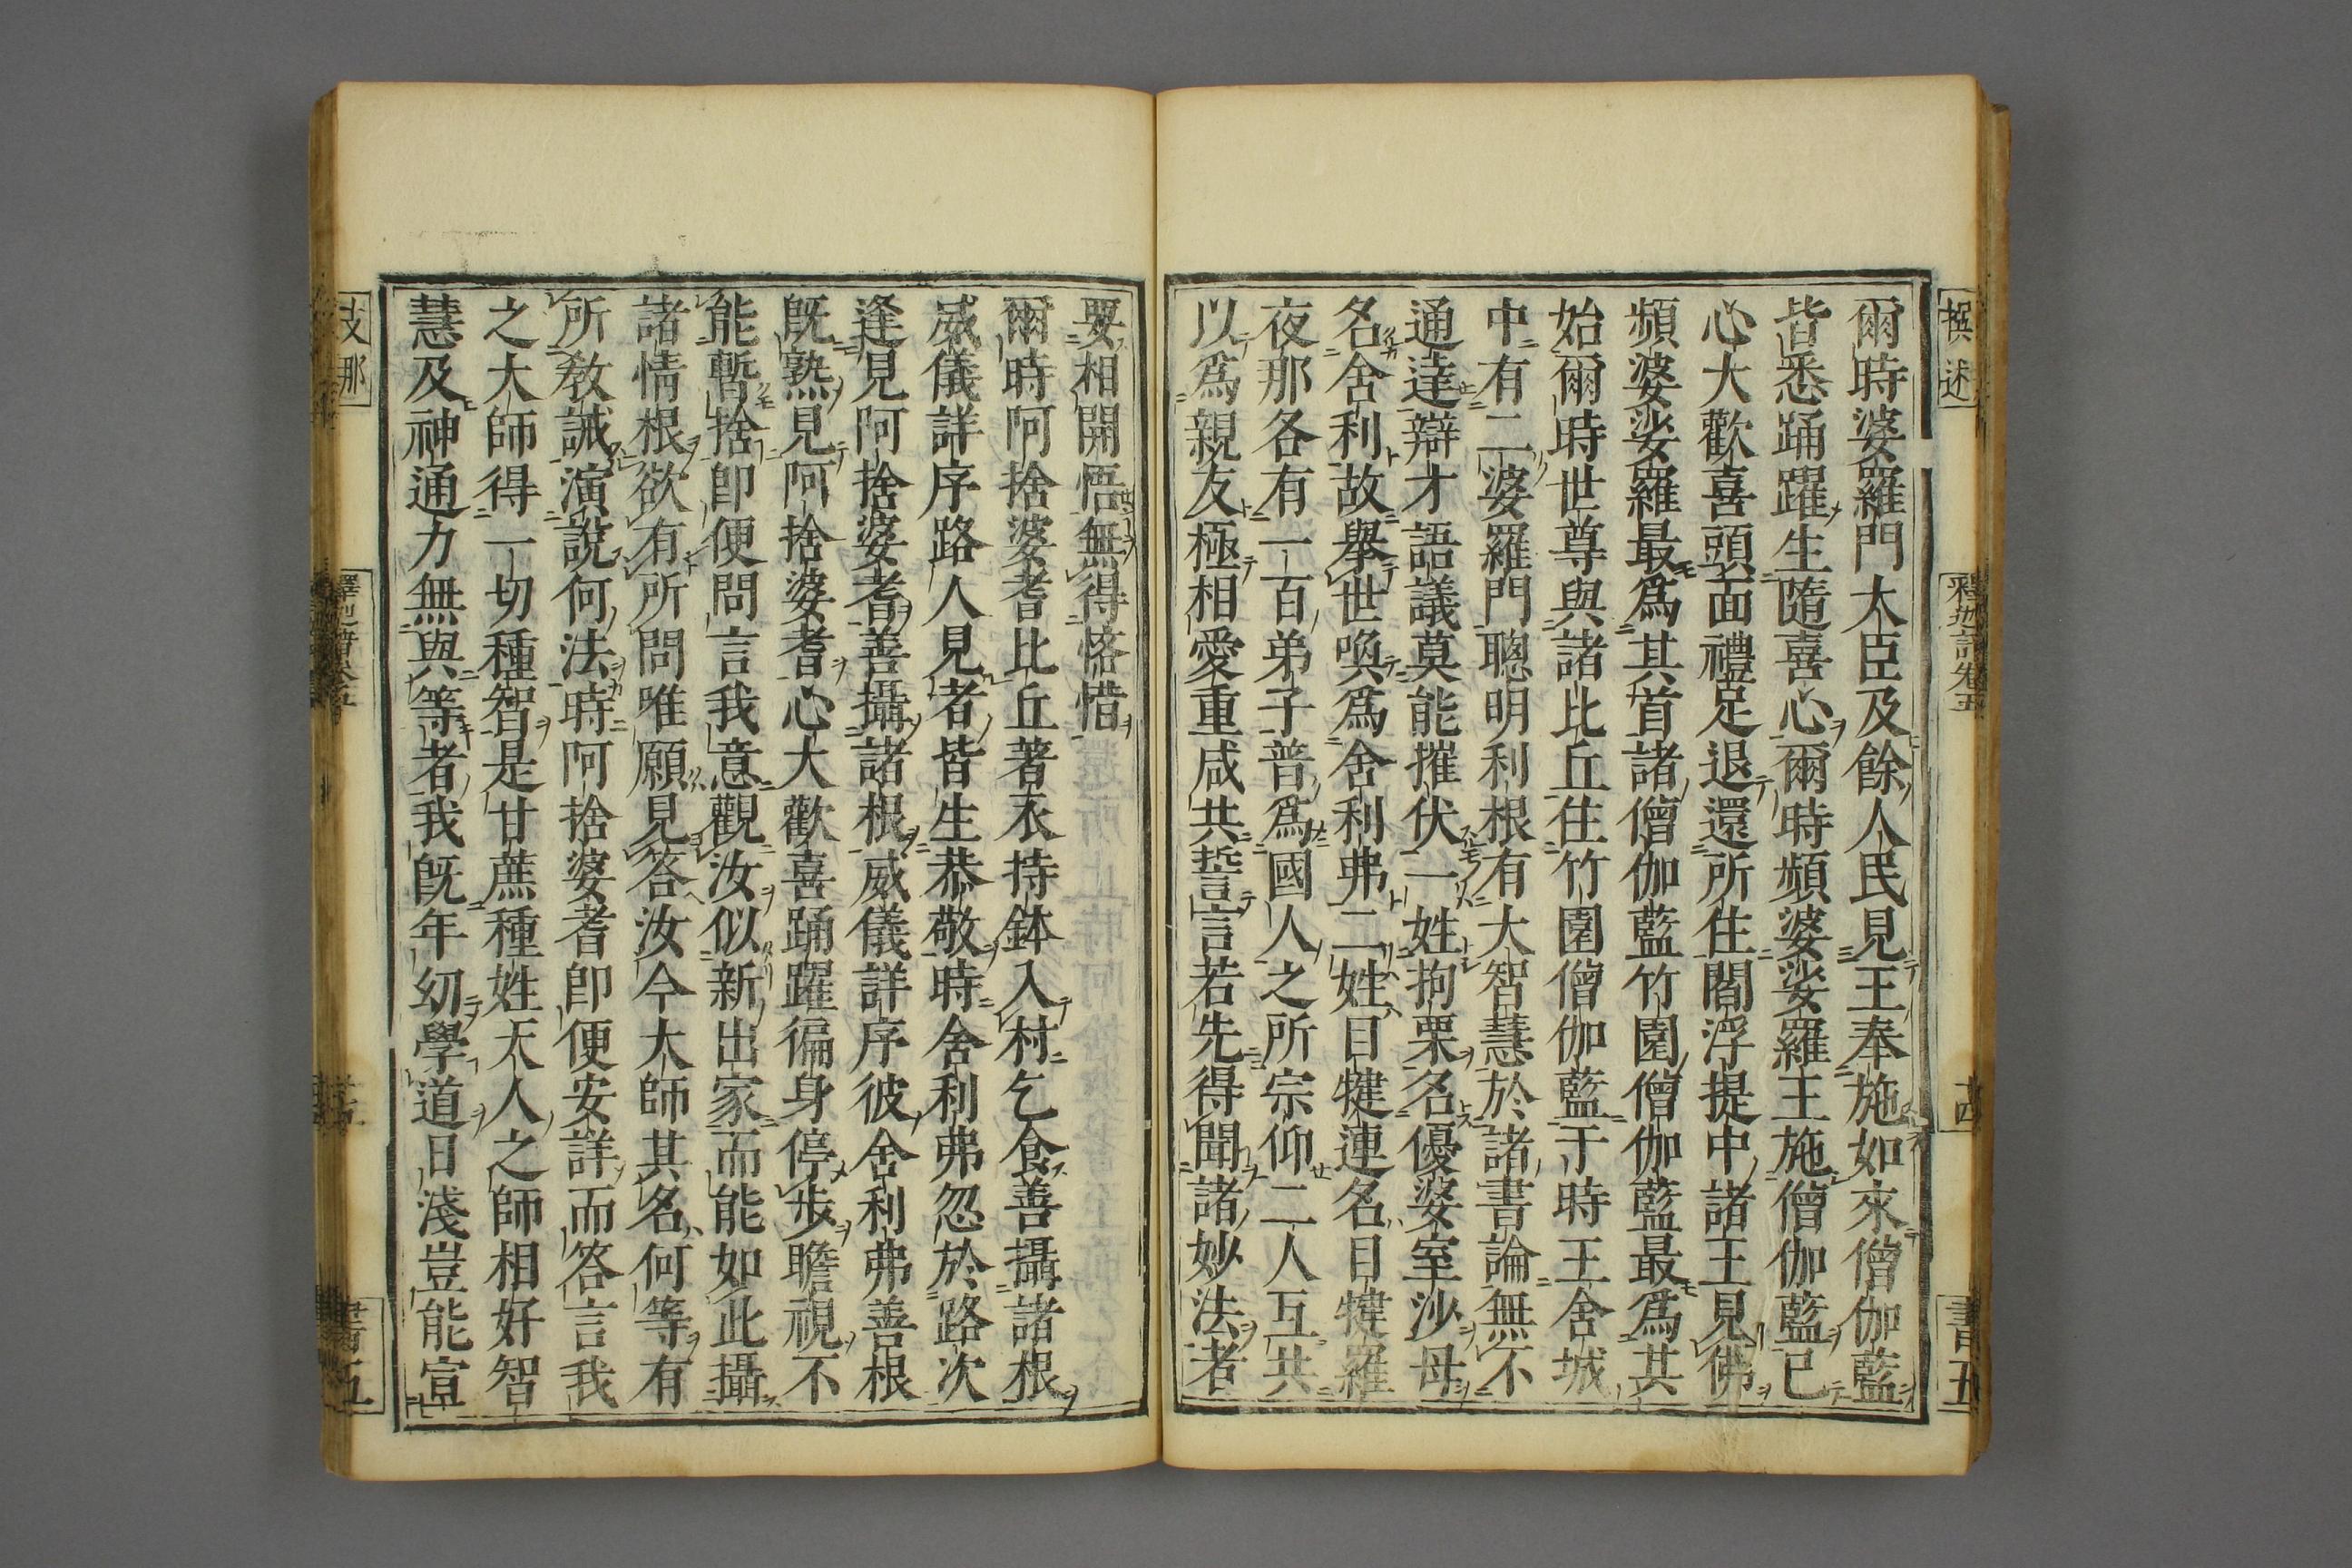 撰述
釈迦譜卷五
十四
書五
爾時婆羅門大臣及餘人民見王奉施如來僧伽藍
皆悉踊躍生隨喜心爾時頻婆娑羅王施僧伽藍已
心大歡喜頭面禮足退還所住閻浮提中諸王見佛
頻婆娑羅最爲其首諸僧伽藍竹園僧伽藍最爲其
始爾時世尊與諸比丘住竹園僧伽藍于時王舍城
中有二婆羅門聰明利根有大智慧於諸書論無不
通達辯才語議莫能摧伏一姓拘栗名優婆室沙母
名舍利故舉世喚爲舍利弗二姓目犍連名目犍羅
夜那各有一百弟子普爲國人之所宗仰二人互共
以爲親友極相愛重咸共誓言若先得聞諸妙法者
要相開悟無得悋惜
爾時阿捨婆耆比丘著衣持鉢入村乞食善攝諸根
威儀詳序路人見者皆生恭敬時舍利弗忽於路次
逢見阿捨婆耆善攝諸根威儀詳序彼舍利弗善根
既熟見阿捨婆耆心大歡喜踊躍徧身停步瞻視不
能暫捨即便問言我意觀汝似新出家而能如此攝
諸情根欲有所問唯願見答汝今大師其名何等有
所敎誡演說何法時阿捨婆耆即便安詳而答言我
之大師得一切種智是甘蔗種姓天人之師相好智
慧及神通力無與等者我既年幼學道日淺豈能宣
支那